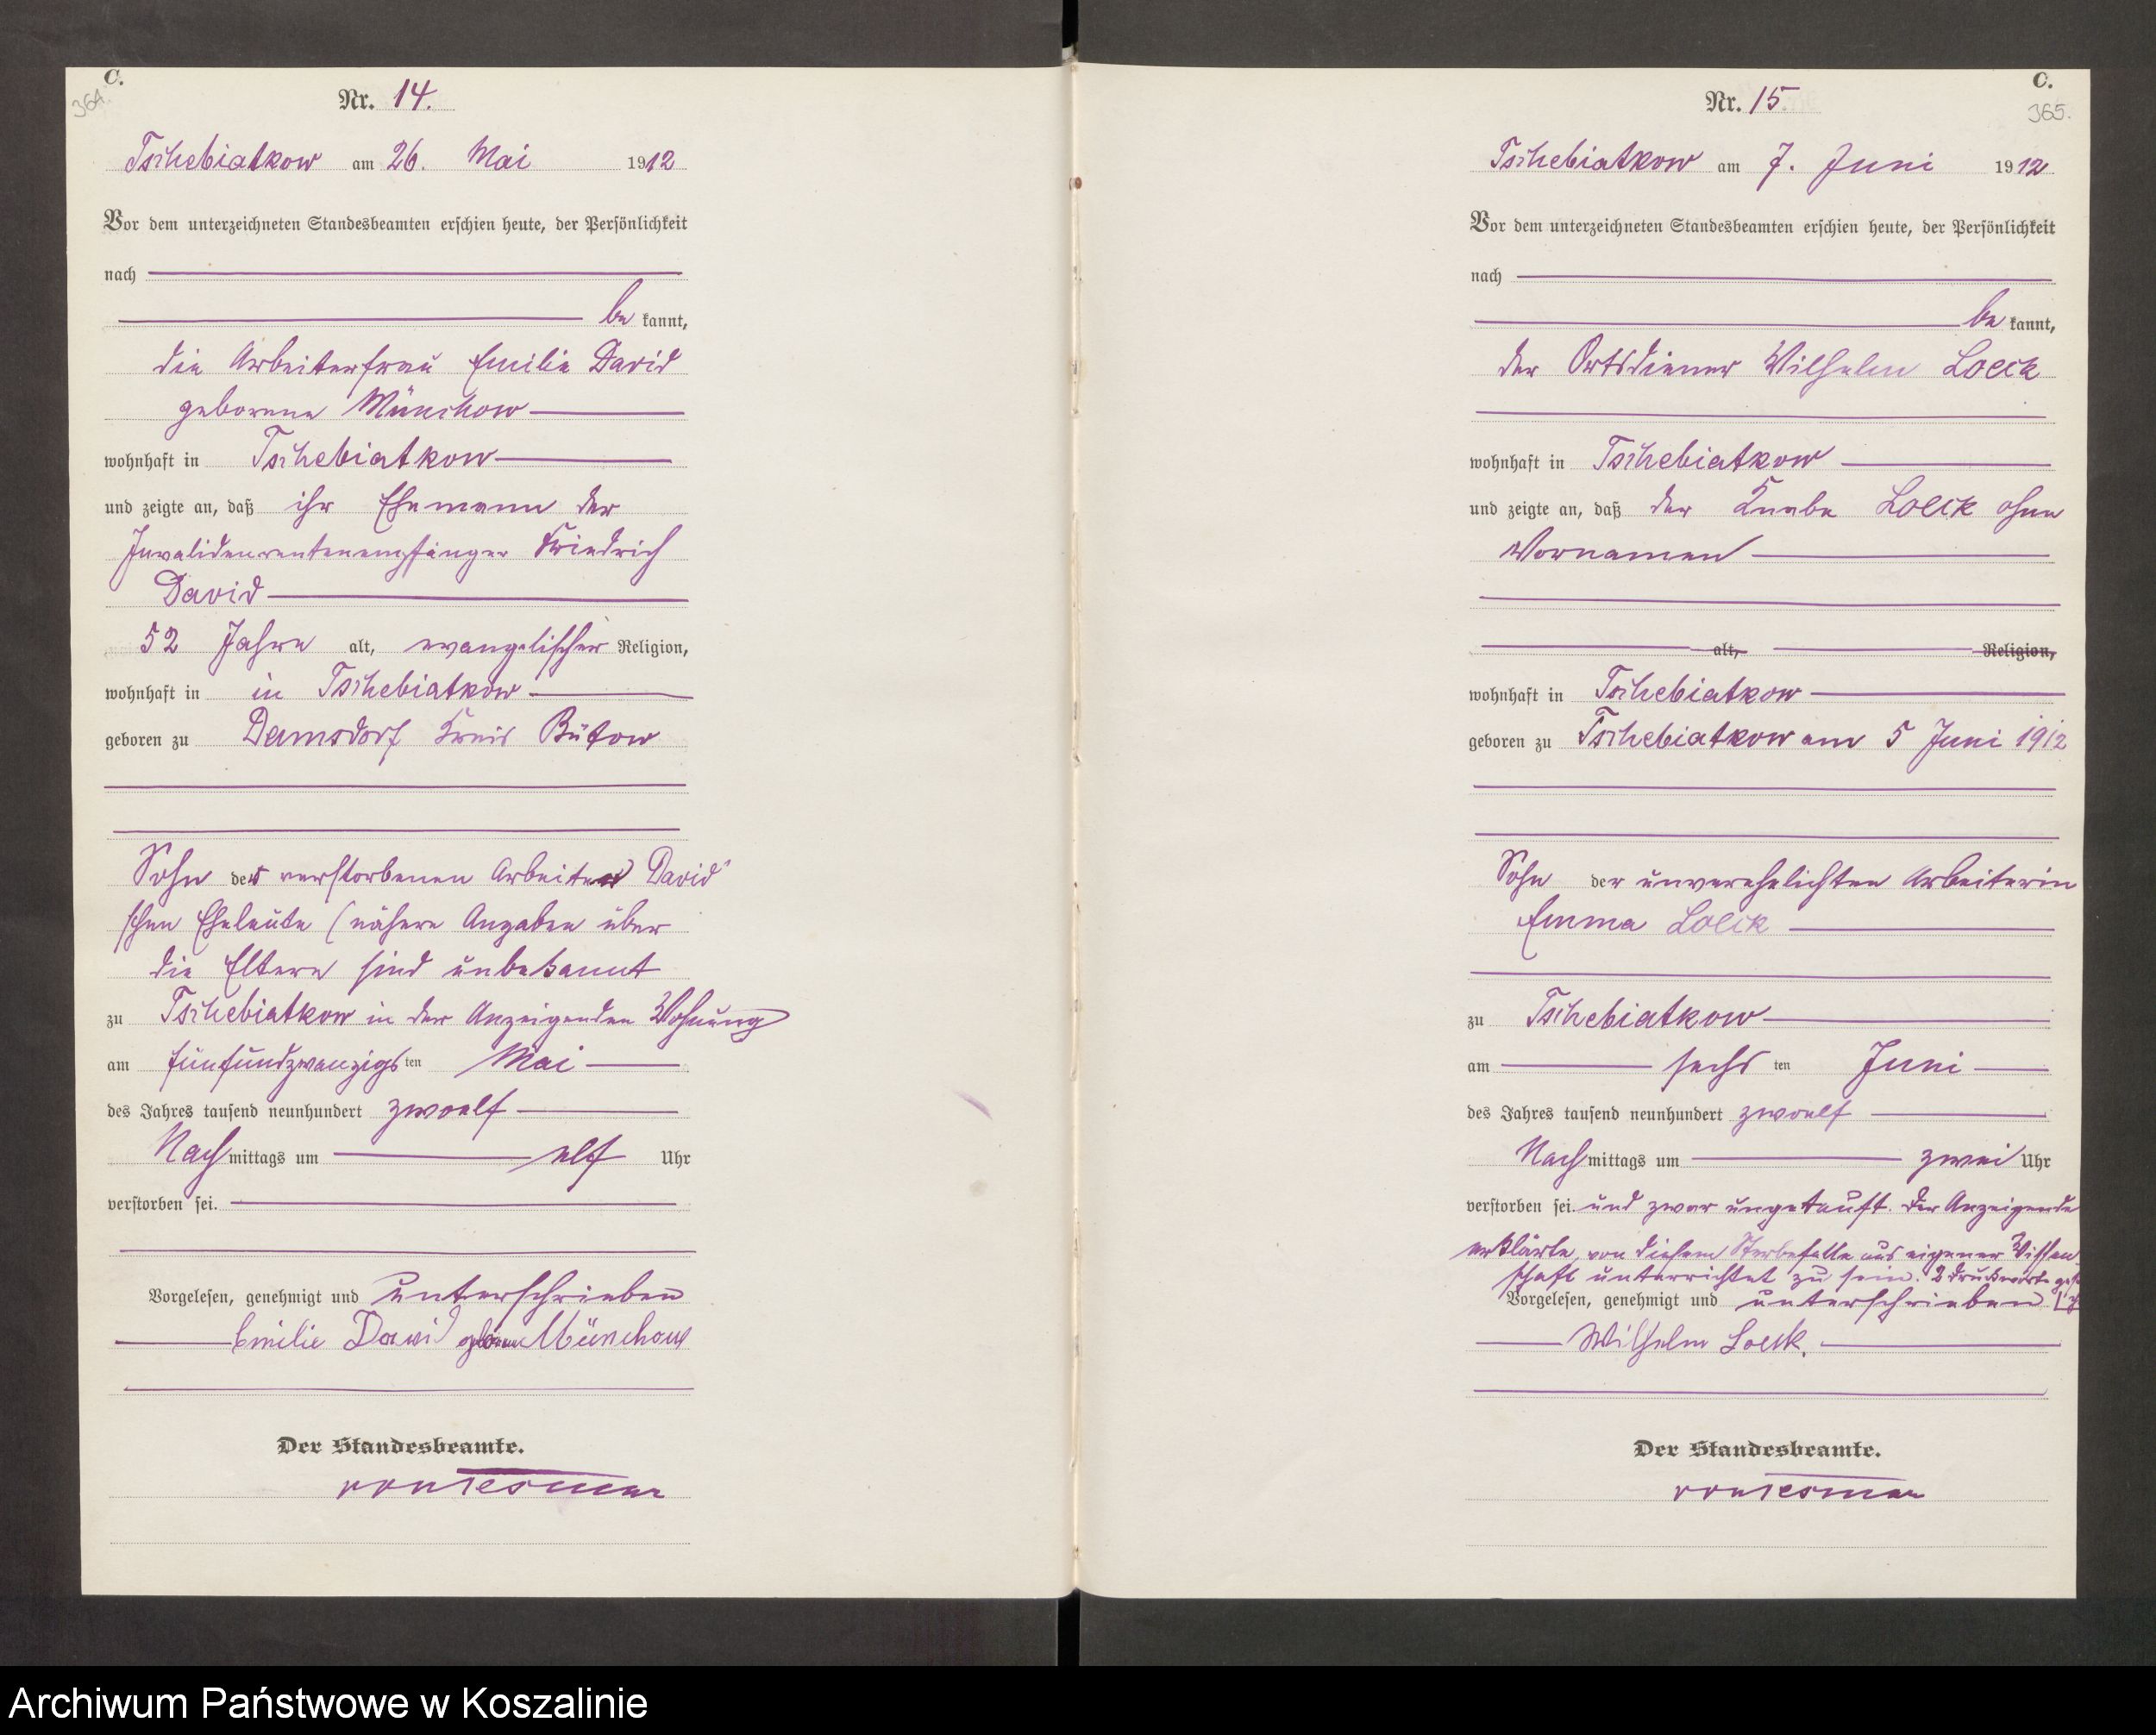 C.
364.
Nr. 14.
Tschebiatkow am 26. Mai 1912
Vor dem unterzeichneten Standesbeamten erschien heute, der Persönlichkeit
nach
be kannt,
die Arbeiterfrau Emilie David
geborene Münchow
wohnhaft in Tschebiatkow
und zeigte an, daß ihr Ehemann der
Invalidenrentenempfänger Friedrich
David
52 Jahre alt, evangelischer Religion,
wohnhaft in in Tschebiatkow
geboren zu Damsdorf Kreis Bütow
Sohn der verstorbenen Arbeiter David
schen Eheleute (nähere Angaben über
die Eltern sind unbekannt
zu Tschebiatkow in der Anzeigenden Wohnung
am fünfundzwanzigs ten Mai
des Jahres tausend neunhundert zwoelf
Nach mittags um elf Uhr
verstorben sei.
Vorgelesen, genehmigt und unterschrieben
Emilie David geborene Münchow
Der Standesbeamte.
von Tesmar
C.
365.
Nr. 15.
Tschebiatkow am 7. Juni 1912
Vor dem unterzeichneten Standesbeamten erschien heute, der Persönlichkeit
nach
be kannt,
der Ortsdiener Wilhelm Loeck
wohnhaft in Tschebiatkow
und zeigte an, daß der Knabe Loeck ohne
Vornamen
alt, Religion,
wohnhaft in Tschebiatkow
geboren zu Tschebiatkow am 5 Juni 1912
Sohn der unverehelichten Arbeiterin
Emma Loeck
zu Tschebiatkow
am sechs ten Juni
des Jahres tausend neunhundert zwoelf
Nach mittags um zwei Uhr
verstorben sei. und zwar ungetauft. Der Anzeigende
erklärte, von diesem Sterbefalle aus eigener Wissen
schaft unterrichtet zu sein. 2 Druckworte
Vorgelesen, genehmigt und unterschrieben
Wilhelm Loeck.
Der Standesbeamte.
von Tesmar
Archiwum Państwowe w Koszalinie